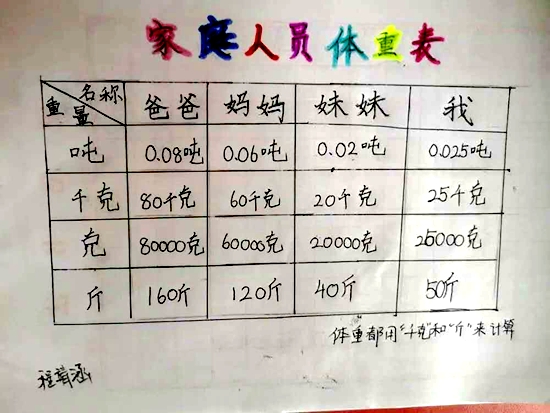 家庭人员体重表
名称 重量 爸爸 妈妈 妹妹 我
吨 0.08吨 0.06吨 0.02吨 0.025吨
千克 80千克 60千克 20千克 25千克
克 80000克 60000克 20000克 25000克
斤 160斤 120斤 40斤 50斤
体重都用“千克”和“斤”来计算
程 涵